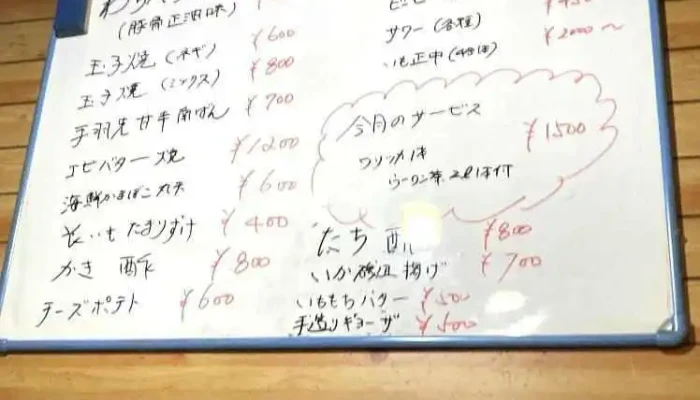 (豚骨正油味)
玉子焼(ネギ) ¥600
玉子焼(ミックス) ¥800
手羽先甘辛南ばん ¥700
エビバター焼 ¥1200
海鮮かまぼこ丸天 ¥600
長いもたまりづけ ¥400
かき酢 ¥800
チーズポテト ¥600
サワー(各種)
¥2000〜
今月のサービス
¥1500
ウーロン茶2ℓ1本付
たち ¥800
いか磯辺揚げ ¥700
いももちバター ¥500
手造りギョーザ ¥500